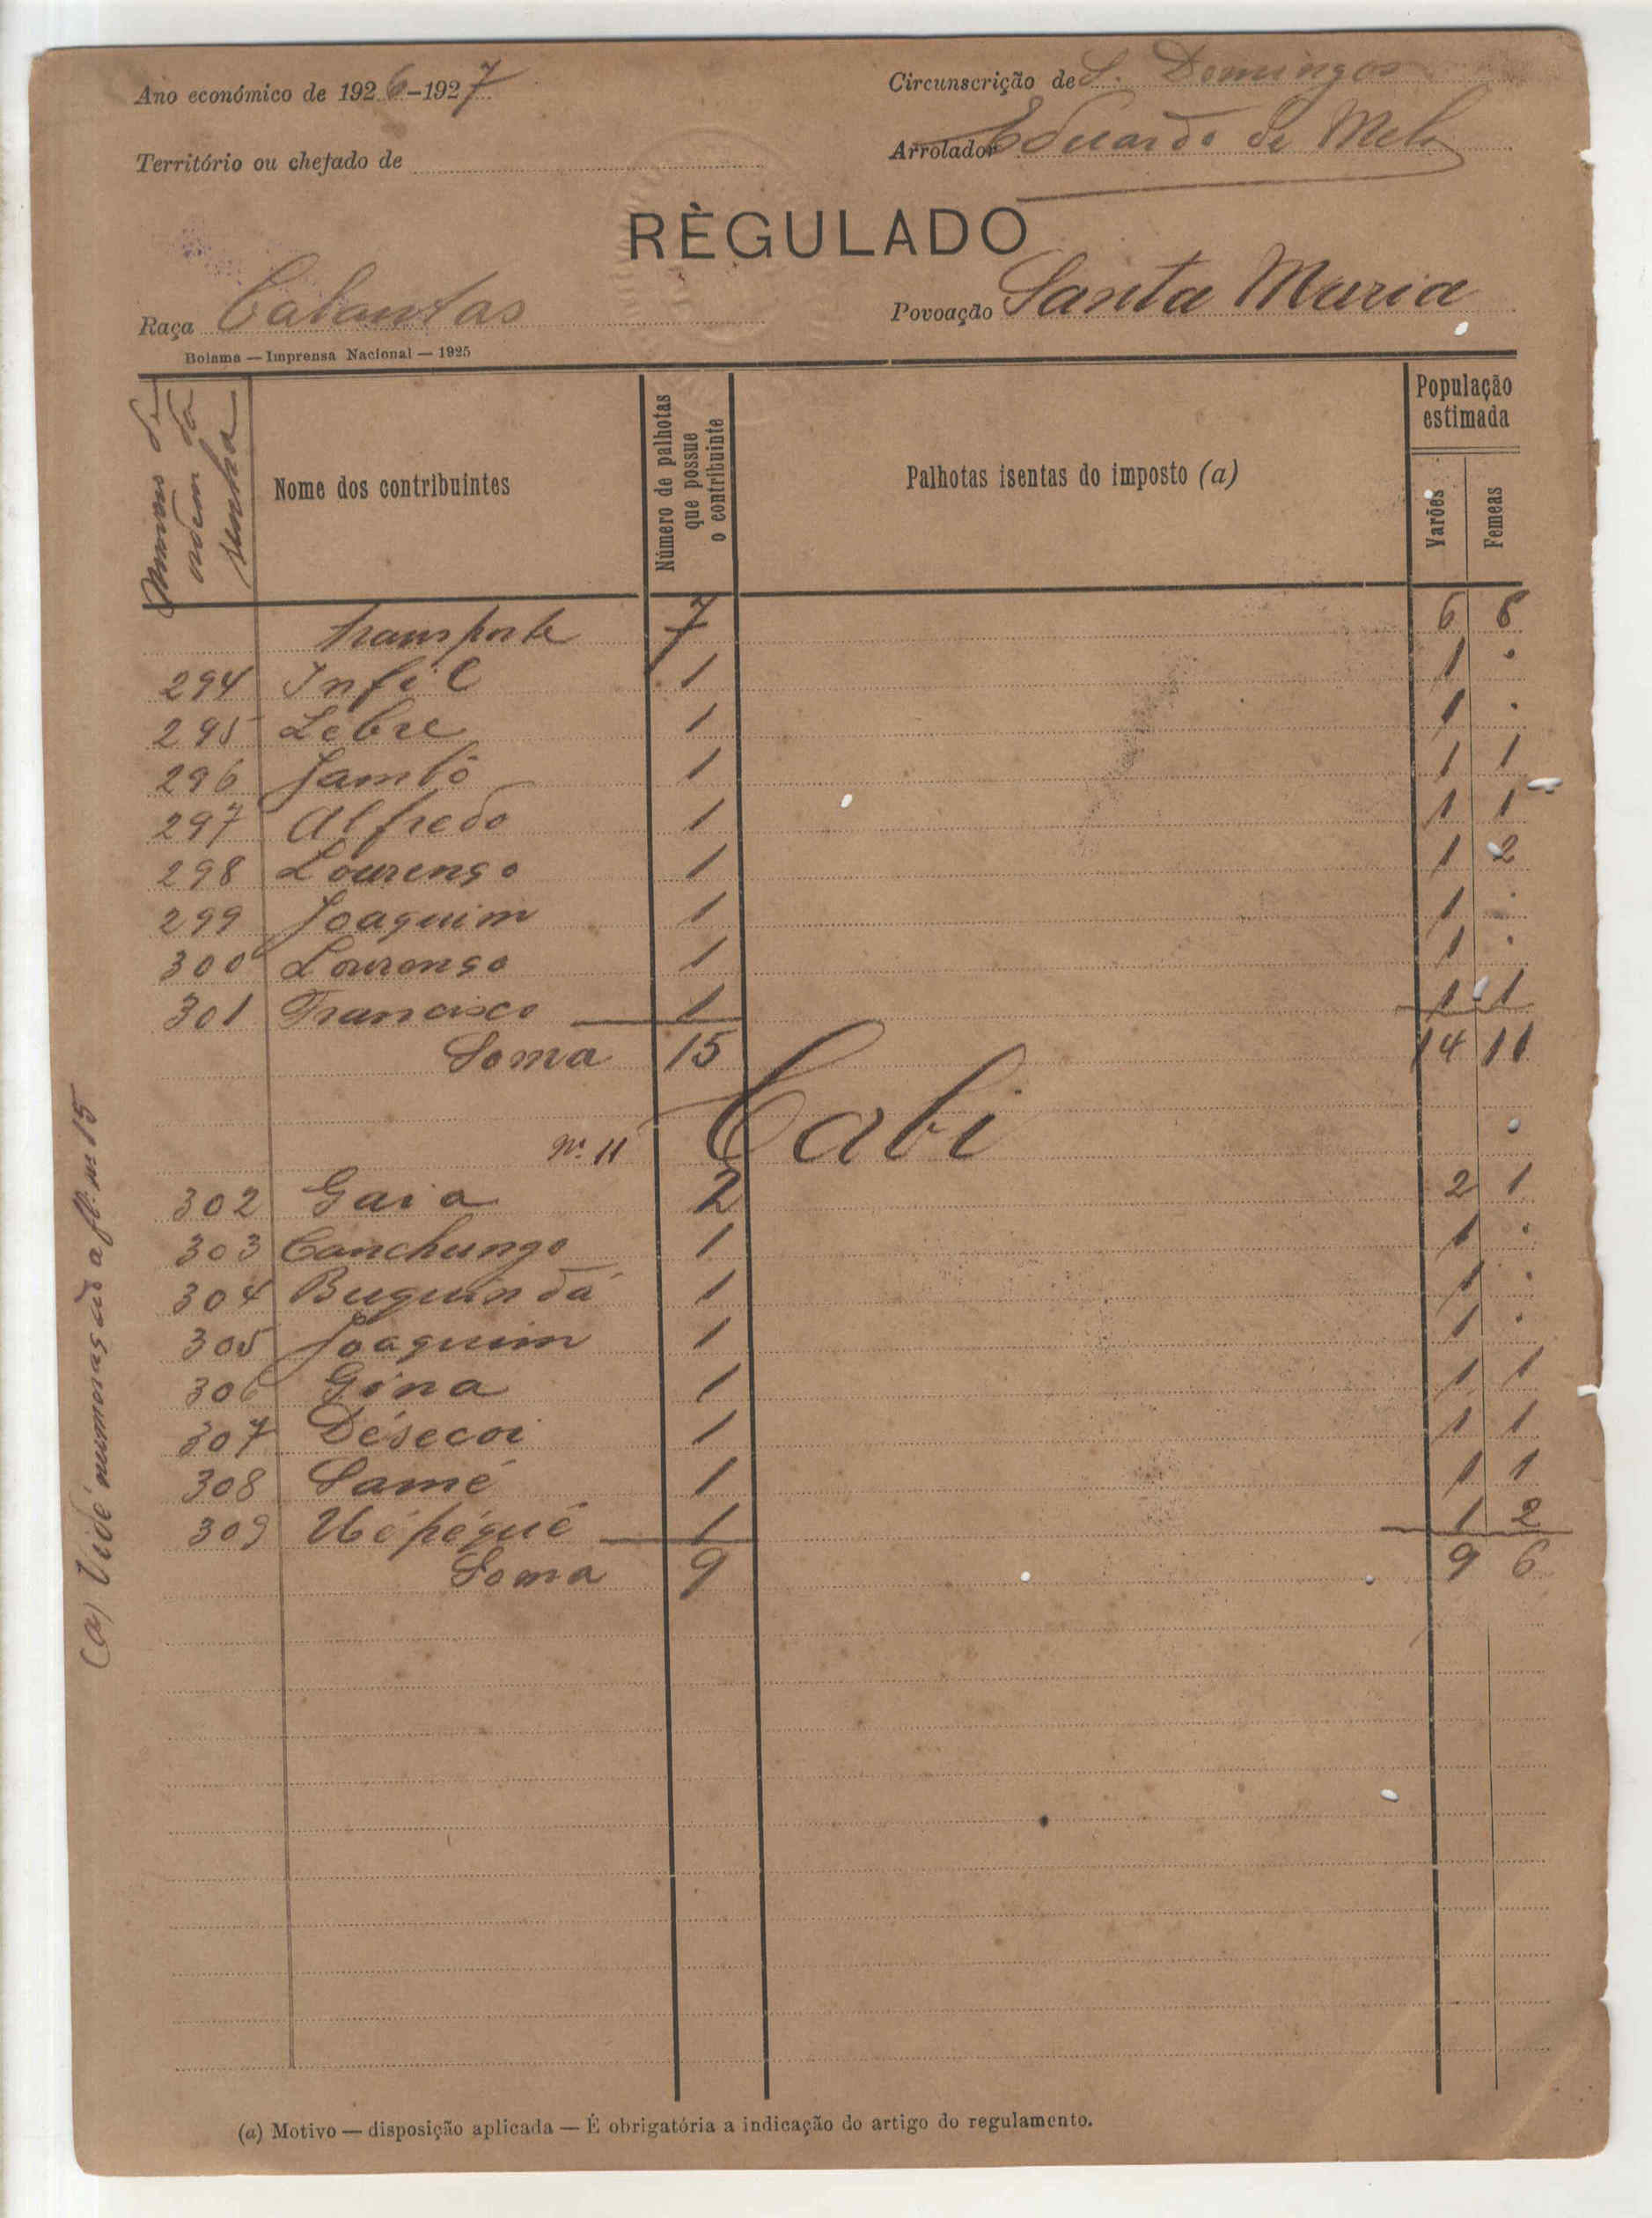 Ano económico de 1926-1927
Circunscrição de S. Domingos
Território ou chefado de
Arrolador Eduardo de Melo
RÈGULADO
Raça
Povoação Santa Maria
Bolama — Imprensa Nacional — 1925
Numero de ordem da senha
Nome dos contribuintes
Número de palhotas que possue o contribuinte
Palhotas isentas do imposto (a)
População estimada
Varões
Femeas
Transporte 7 6 6
294 Infil 1 1 .
295 Lebre 1 1 .
296 Jambô 1 1 1
297 Alfredo 1 1 1
298 Lourenço 1 1 2
299 Joaquim 1 1 .
300 Lourenço 1 1 .
301 Francisco 1 1 1
Soma 15 14 11
Nº 11 Cabi
302 Gaia 2 2 1
303 Canchungo 1 1 .
304 Buguindá 1 1 .
305 Joaquim 1 1 .
306 Gina 1 1 1
307 Désecoi 1 1 1
308 Samé 1 1 1
309 1 1 2
Soma 9 9 6
(a) Vide numeração a fl. nº 15
(a) Motivo — disposição aplicada — É obrigatória a indicação do artigo do regulamento.